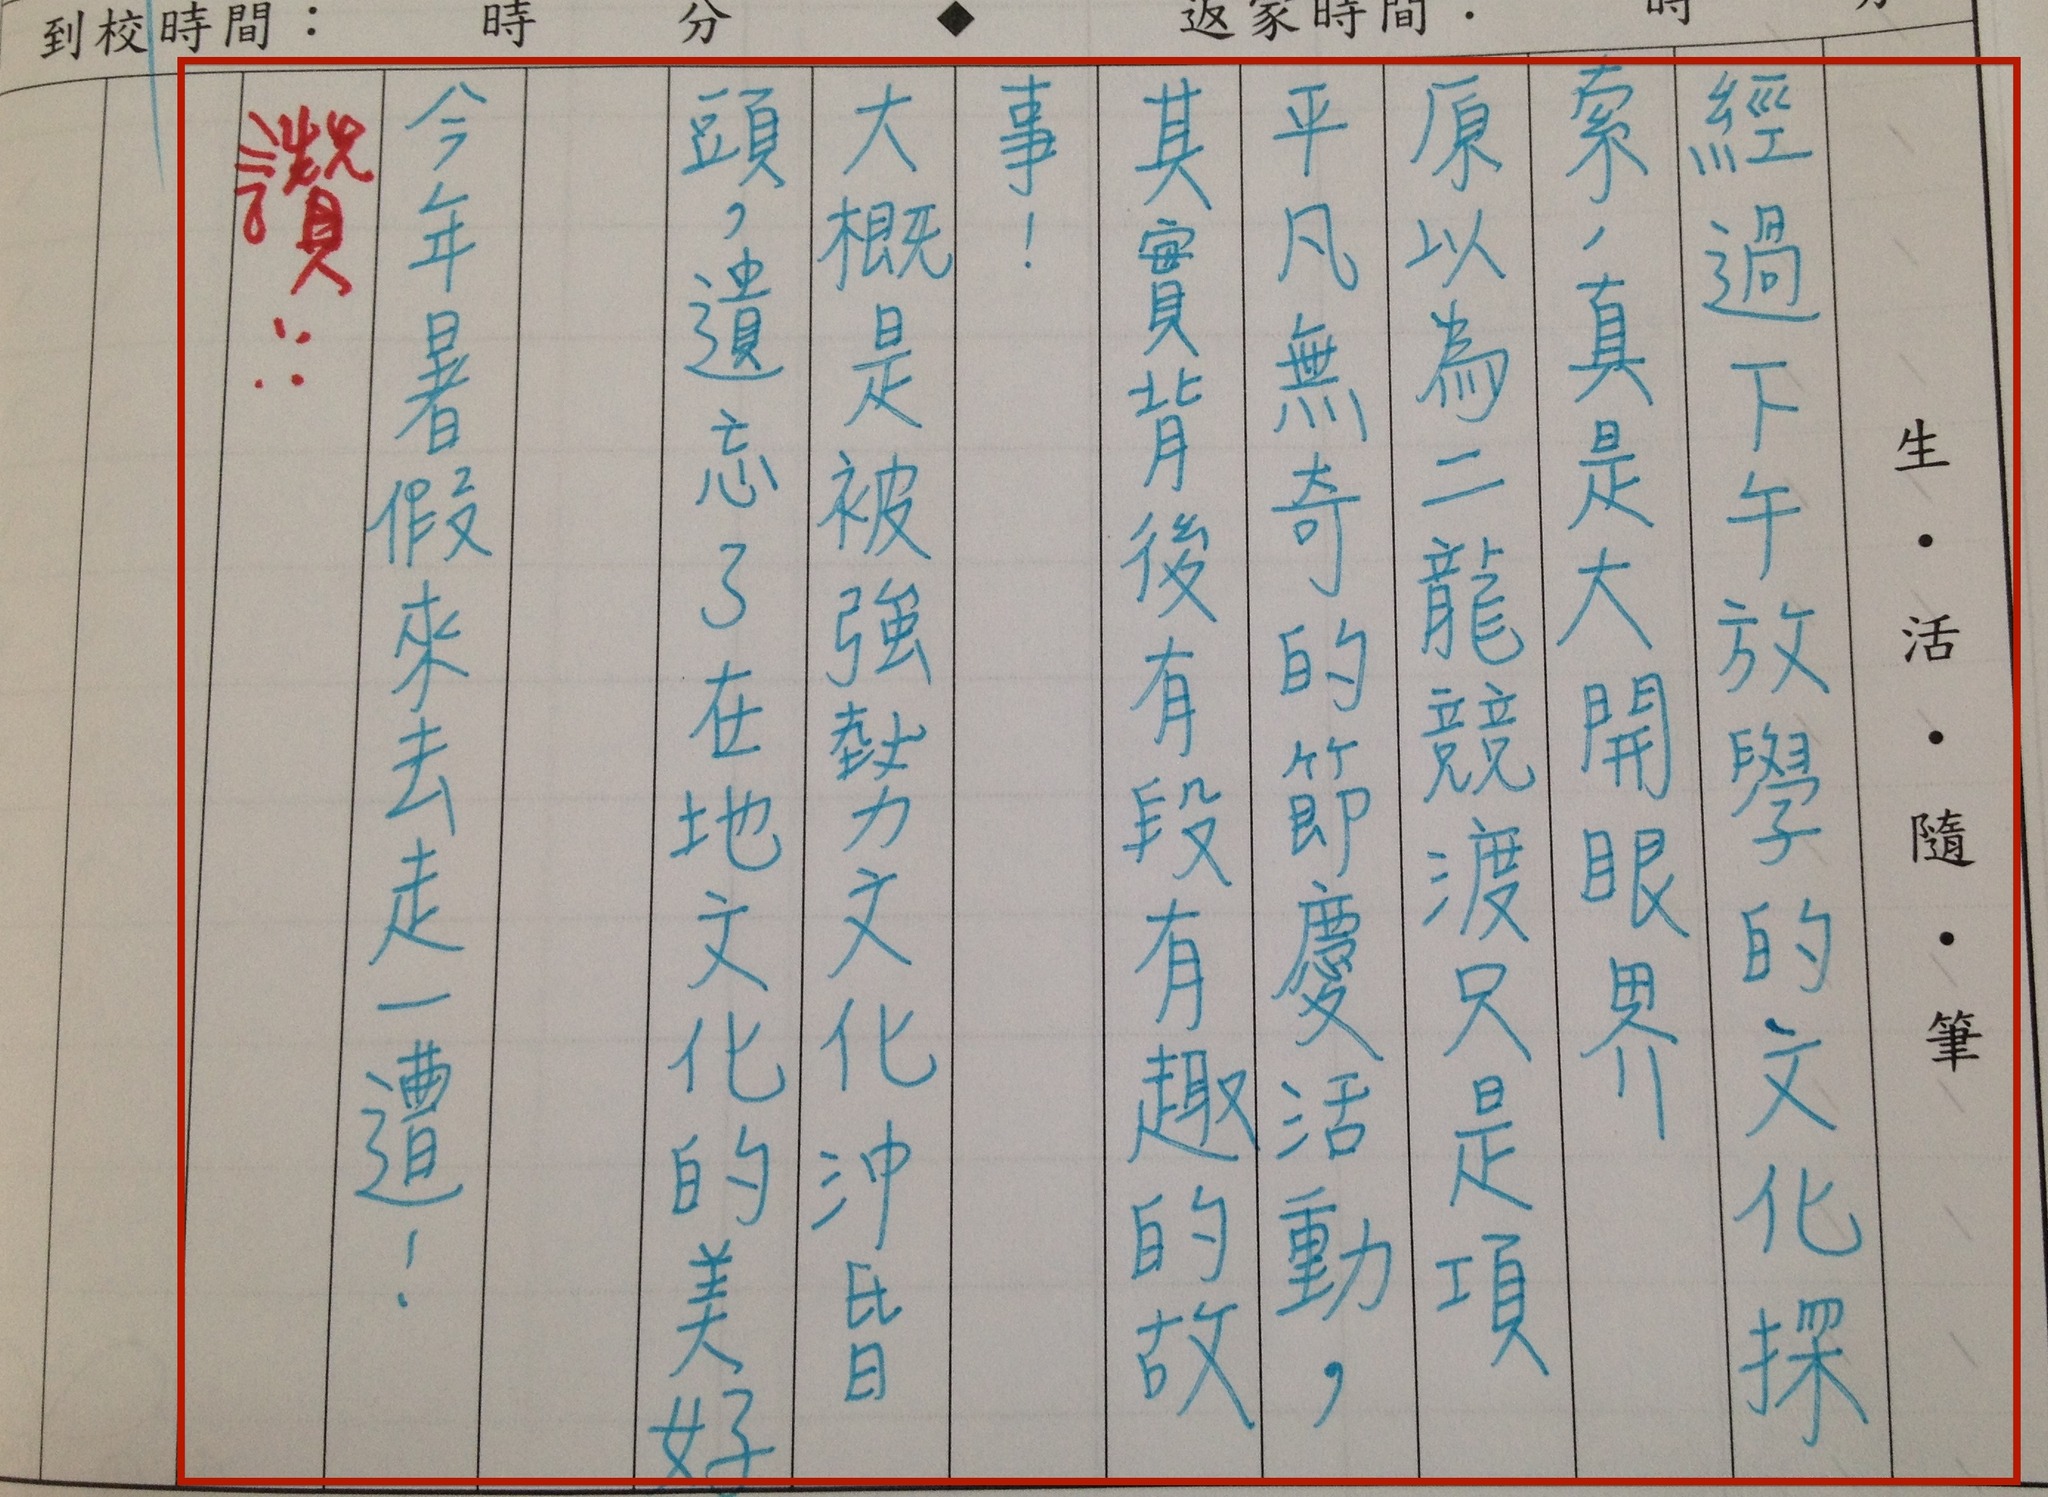 到校時間： 時 分 ◆ 返家時間： 時 分
生・活・隨・筆
經過下午放學的文化探
索，真是大開眼界
原以為二龍競渡只是項
平凡無奇的節慶活動，
其實背後有段有趣的故
事！
大概是被強勢力文化沖昏
頭，遺忘了在地文化的美好
今年暑假來去走一遭！
讚！！